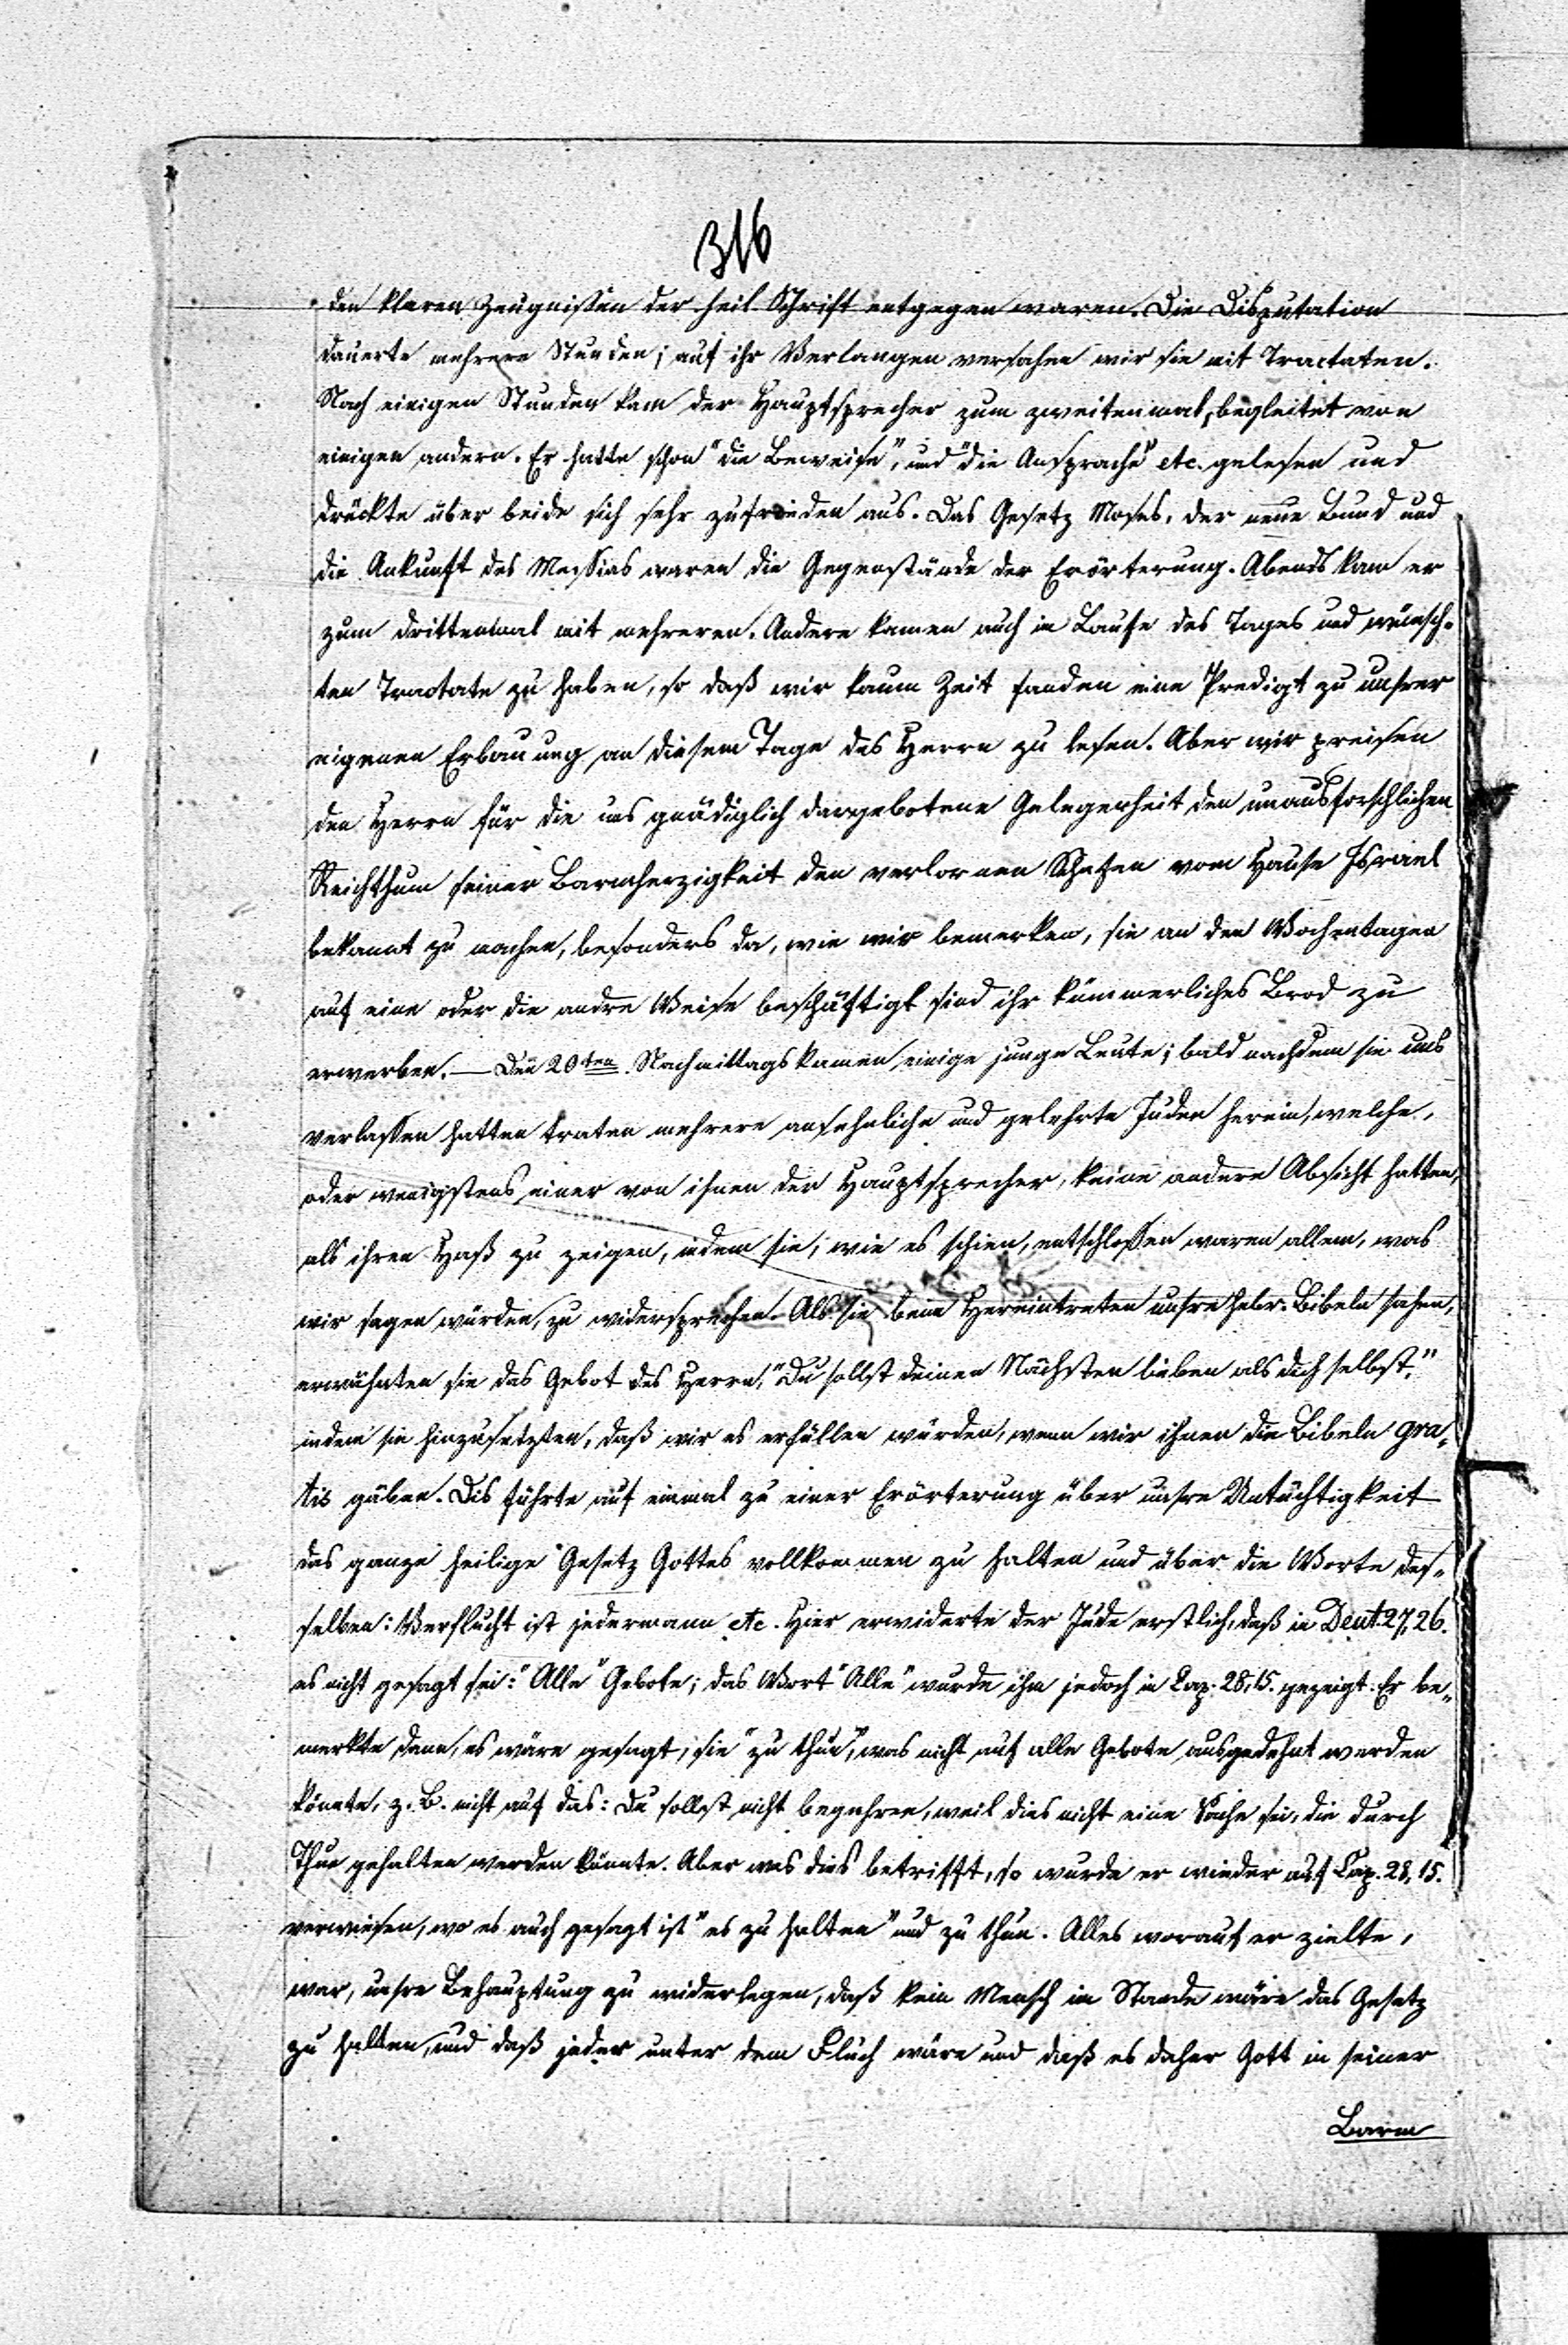 316
den klaren Zeugnißen der heil. Schrift entgegen waren. Die Disputation
dauerte mehrere Stunden; auf ihr Verlangen versahen wir sie mit Tractaten.
Nach einigen Stunden kam der Hauptsprecher zum zweitenmal, begleitet von
einigen andern. Er hatte schon "die Beweise", und "die Ansprache" etc. gelesen und
drückte über beide sich sehr zufrieden aus. Das Gesetz Moses, der neue Bund und
die Ankunft des Messias waren die Gegenstände der Erörterung. Abends kam er
zum drittenmal mit mehreren. Andere kamen auch im Laufe des Tages und wünsch-
ten Tractate zu haben, so daß wir kaum Zeit fanden eine Predigt zu unsrer
eigenen Erbauung an diesem Tage des Herrn zu lesen. Aber wir preisen
den Herrn für die uns gnädiglich dargebotene Gelegenheit den unausforschlichen
Reichthum seiner Barmherzigkeit den verlornen Schafen vom Hause Israel
bekannt zu machen, besonders da, wie wir bemerken, sie an den Wochentagen
auf eine oder die andre Weise beschäftigt sind ihr kümmerliches Brod zu
erwerben. — Den 20ten Nachmittags kamen einige junge Leute; bald nachdem sie uns
verlaßen hatten traten mehrere ansehnliche und gelehrte Juden herein, welche,
oder wenigstens einer von ihnen der Hauptsprecher, keine andere Absicht hatten,
als ihren Haß zu zeigen, indem sie, wie es schien, entschloßen waren allem, was
wir sagen würden, zu widersprechen. Als sie beim Hereintreten unsre hebr. Bibeln sahen,
erwähnten sie das Gebot des Herrn, "Du sollst deinen Nächsten lieben als dich selbst,"
indem sie hinzusetzten, daß wir es erfüllen würden, wenn wir ihnen die Bibeln gra-
tis gäben. Dis führte auf einmal zu einer Erörterung über unsre Untüchtigkeit
das ganze heilige Gesetz Gottes vollkommen zu halten und über die Worte des-
selben: Verflucht ist jedermann etc. Hier erwiderte der Jude erstlich, daß in Deut. 27, 26.
es nicht gesagt sei: "Alle" Gebote; das Wort "Alle" wurde ihm jedoch in Cap. 28, 15. gezeigt. Er be-
merkte dann, es wäre gesagt, sie "zu thun", was nicht auf alle Gebote ausgedehnt werden
könnte, z. B. nicht auf das: Du sollst nicht begehren, weil dies nicht eine Sache sei, die durch
Thun gehalten werden könnte. Aber was dies betrifft, so wurde er wieder auf Cap. 28, 15.
verwiesen, wo es auch gesagt ist "es zu halten" und zu thun. Alles worauf er zielte,
war, unsre Behauptung zu widerlegen, daß kein Mensch im Stande wäre das Gesetz
zu halten, und daß jeder unter dem Fluch wäre und daß es daher Gott in seiner
Barm